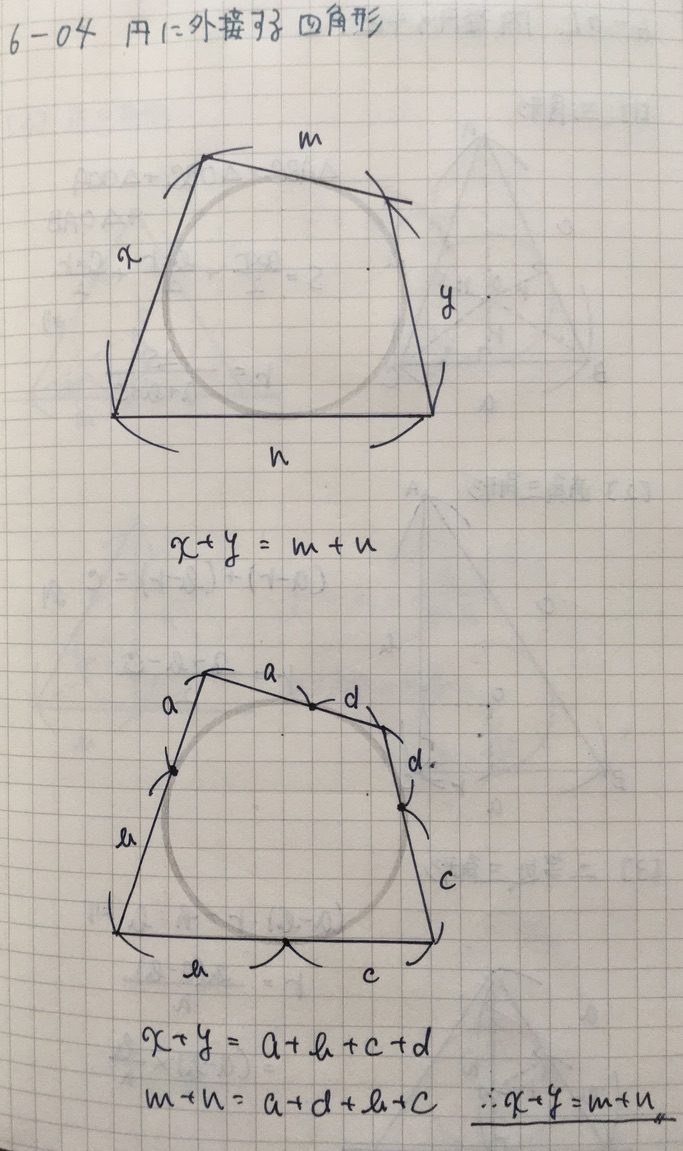 6-04 円に外接する四角形
m
x
y
n
x+y = m+n
a
a
d
d
b
c
b
c
x+y = a+b+c+d
m+n = a+d+b+c ∴x+y=m+n